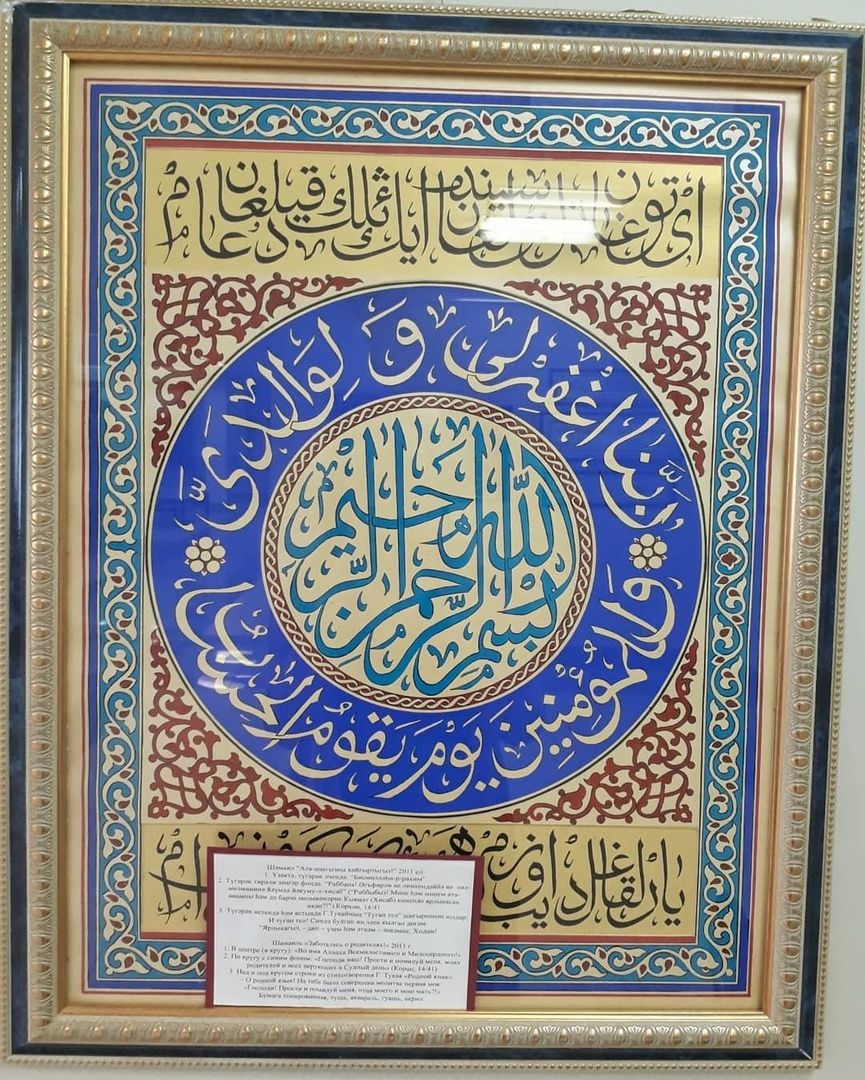 ای توغان ایڭ ئلك قیلغان دعام
ربنا اغفرلى و لوالدىّ
بسم الله الرحمن الرحيم
وللمؤمنين يوم يقوم الحساب
یارلقاغل دیب اوزم
Шамаил "Ата-анагызны кайгыртыгыз!" 2011 ел
1. Үзәктә, түгәрәк эчендә: "Бисмилләһи-р-рахим"
2. Түгәрәк тирәли зәңгәр фонда: "Раббана! Әгъфирли вә ливалидәййә вә лил-
мөэмининә йәүмә йәкуму-л-хисаб" ("Раббыбыз! Мине һәм минем ата-
анамны һәм дә барча мөэминнәрне Кыямәт (Хисаб) көнендә ярлыкасаң
икән!!") Коръән, 14/41
3. Түгәрәк өстендә һәм астында Г.Тукайның "Туган тел" шигыреннән юллар:
И туган тел! Синдә булган иң элек кылган догам:
"Ярлыкагыл, - дип – үзем һәм әткәм - әнкәмне, Ходам!
Шамаиль «Заботьтесь о родителях!» 2011 г.
1. В центре (в кругу): «Во имя Аллаха Всемилостивого и Милосердного!».
2. По кругу с синим фоном: «Господи наш! Прости и помилуй меня, моих
родителей и всех верующих в Судный день» (Коран, 14/41)
3. Над и под кругом строки из стихотворения Г. Тукая «Родной язык»:
О родной язык! На тебе была совершена молитва первая моя:
«Господи! Прости и помилуй меня, отца моего и мою мать!!»
Бумага тонированная, тушь, акварель, гуашь, акрил